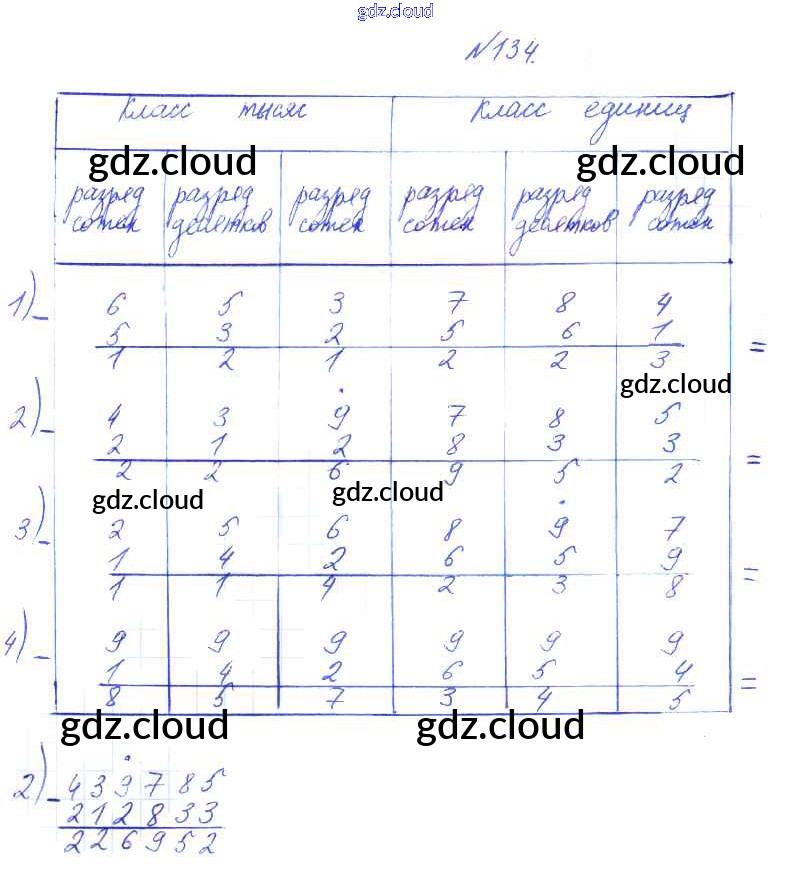 gdz.cloud
№134.
Класс тысяч Класс единиц
gdz.cloud gdz.cloud
разряд разряд разряд разряд разряд разряд
сотен десятков сотен сотен десятков сотен
1) – 6 5 3 7 8 4
5 3 2 5 6 1
1 2 1 2 2 3 =
gdz.cloud
2) – 4 3 9 7 8 5
2 1 2 8 3 3
2 2 6 9 5 2 =
gdz.cloud gdz.cloud
3) – 2 5 6 8 9 7
1 4 2 6 5 9
1 1 4 2 3 8 =
4) – 9 9 9 9 9 9
1 4 2 6 5 4
8 5 7 3 4 5 =
gdz.cloud gdz.cloud
2) – 4 3 9 7 8 5
2 1 2 8 3 3
2 2 6 9 5 2